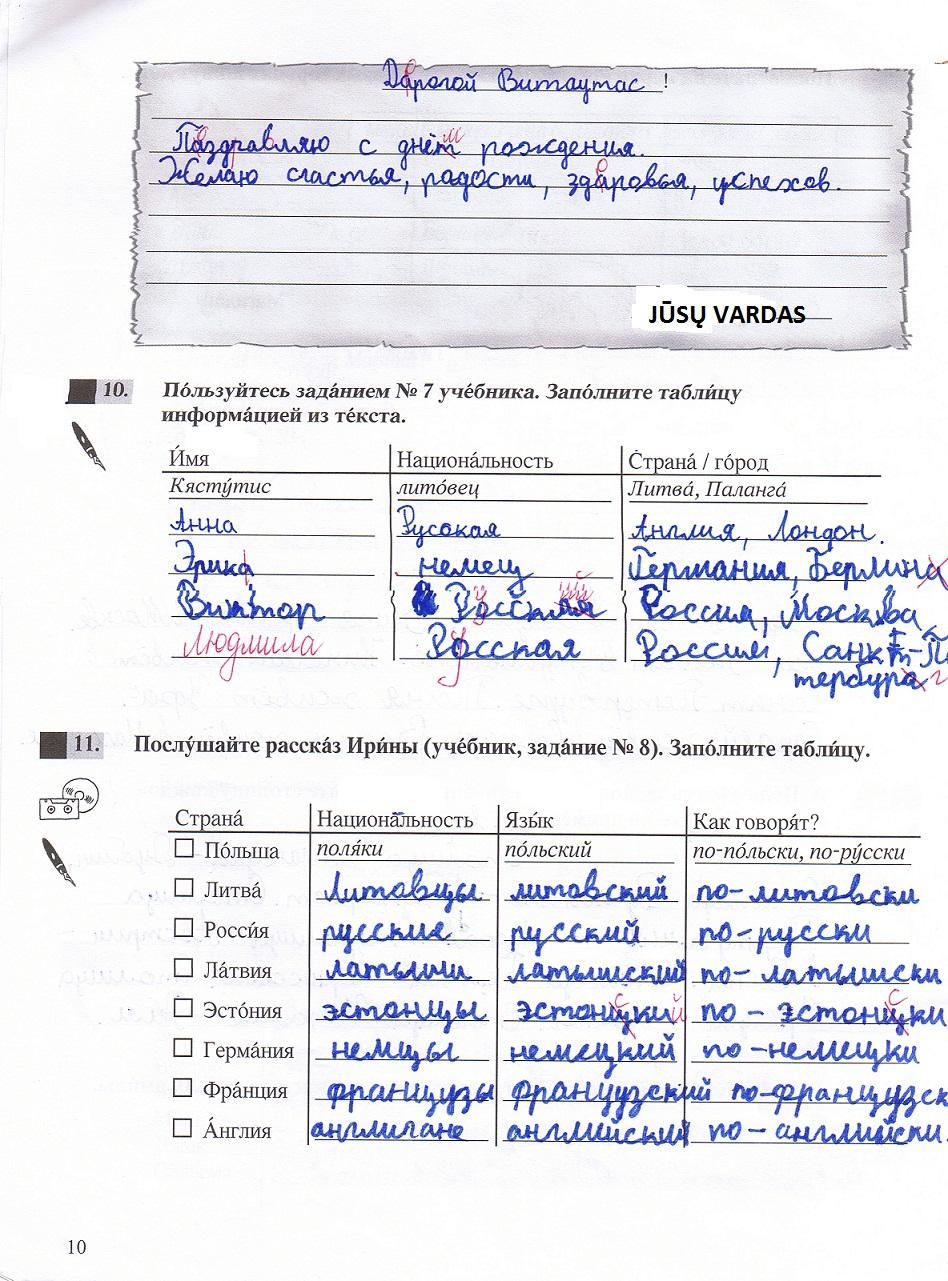 Дарогой Витаутас !
Паздравляю с днём рождения.
Желаю счастья, радости, здаровья, успехов.
JŪSŲ VARDAS
10. По́льзуйтесь зада́нием № 7 уче́бника. Запо́лните табли́цу
информа́цией из те́кста.
И́мя Национа́льность Страна́ / го́род
Кясту́тис лито́вец Литва́, Паланга́
Анна Русская Англия, Лондон.
Эрика немец Германия, Берлина
Виктор Россия, Москва
Людмила Росская Россия, Санкт-П
тербург
11. Послу́шайте расска́з Ири́ны (уче́бник, зада́ние № 8). Запо́лните табли́цу.
Страна́ Национа́льность Язы́к Как говоря́т?
По́льша поля́ки по́льский по-по́льски, по-ру́сски
Литва́ Литовцы литовский по-литовски
Росси́я русские русский по-русски
Ла́твия латыши латышский по-латышски
Эсто́ния эстонцы эстонцкий по-эстонцки
Герма́ния немцы немецкий по-немецки
Фра́нция французы французский по-французск
А́нглия англичане английский по-английски.
10